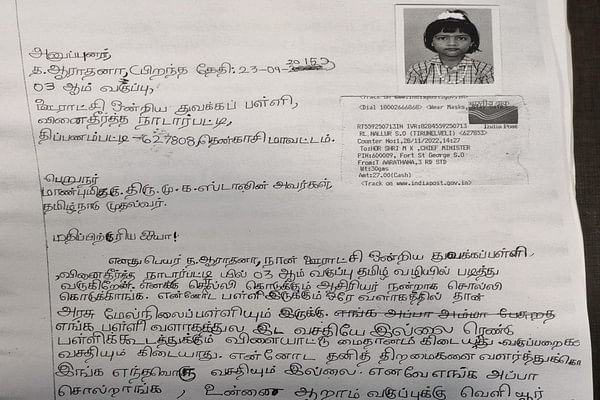 அனுப்புனர்
த.ஆராதனா, (பிறந்த தேதி: 23-09-2015)
03 ஆம் வகுப்பு,
ஊராட்சி ஒன்றிய துவக்கப் பள்ளி,
வினைதீர்த்த நாடார்பட்டி,
திப்பணம்பட்டி -627808, தென்காசி மாவட்டம்.
<Track on www.indiapost.gov.in>
<Dial 18002666868> <Wear Masks,
India Post
RT559250713IN IVR:8284559250713
RL NALLUR S.O (TIRUNELVELI) <627853>
Counter No:1,28/11/2022,14:27
To:HOR SHRI M K ,CHIEF MINISTER
PIN:600009, Fort St George S.O
From:T AARATHANA,3 RD STD
Wt:30gms
Amt:27.00(Cash)
<Track on www.indiapost.gov.in>
பெறுநர்
மாண்புமிகு. திரு. மு.க.ஸ்டாலின் அவர்கள்,
தமிழ்நாடு முதல்வர்.
மதிப்பிற்குரிய ஐயா!
எனது பெயர் த.ஆராதனா, நான் ஊராட்சி ஒன்றிய துவக்கப்பள்ளி
,வினைதீர்த்த நாடார்பட்டி யில் 03 ஆம் வகுப்பு தமிழ் வழியில் படித்து
வருகிறேன். எனக்கு சொல்லி கொடுக்கும் ஆசிரியர் நன்றாக சொல்லி
கொடுக்காங்க. என்னோட பள்ளி இருக்கும் ஒரே வளாகத்தில் தான்
அரசு மேல்நிலைப்பள்ளியும் இருக்கு. எங்க அப்பா அம்மா
எங்க பள்ளி வளாகத்துல இட வசதியே இல்லை ரெண்டு
பள்ளிக்கூடத்துக்கும் விளையாட்டு மைதானம் கிடையாது. வகுப்பறைக்
வசதியும் கிடையாது. என்னோட தனித் திறமைகளை வளர்த்துக்கொ
இங்க எந்தவொரு வசதியும் இல்லை. எனவே எங்க அப்பா
சொல்றாங்க , உன்னை ஆறாம் வகுப்புக்கு வெளியூர்